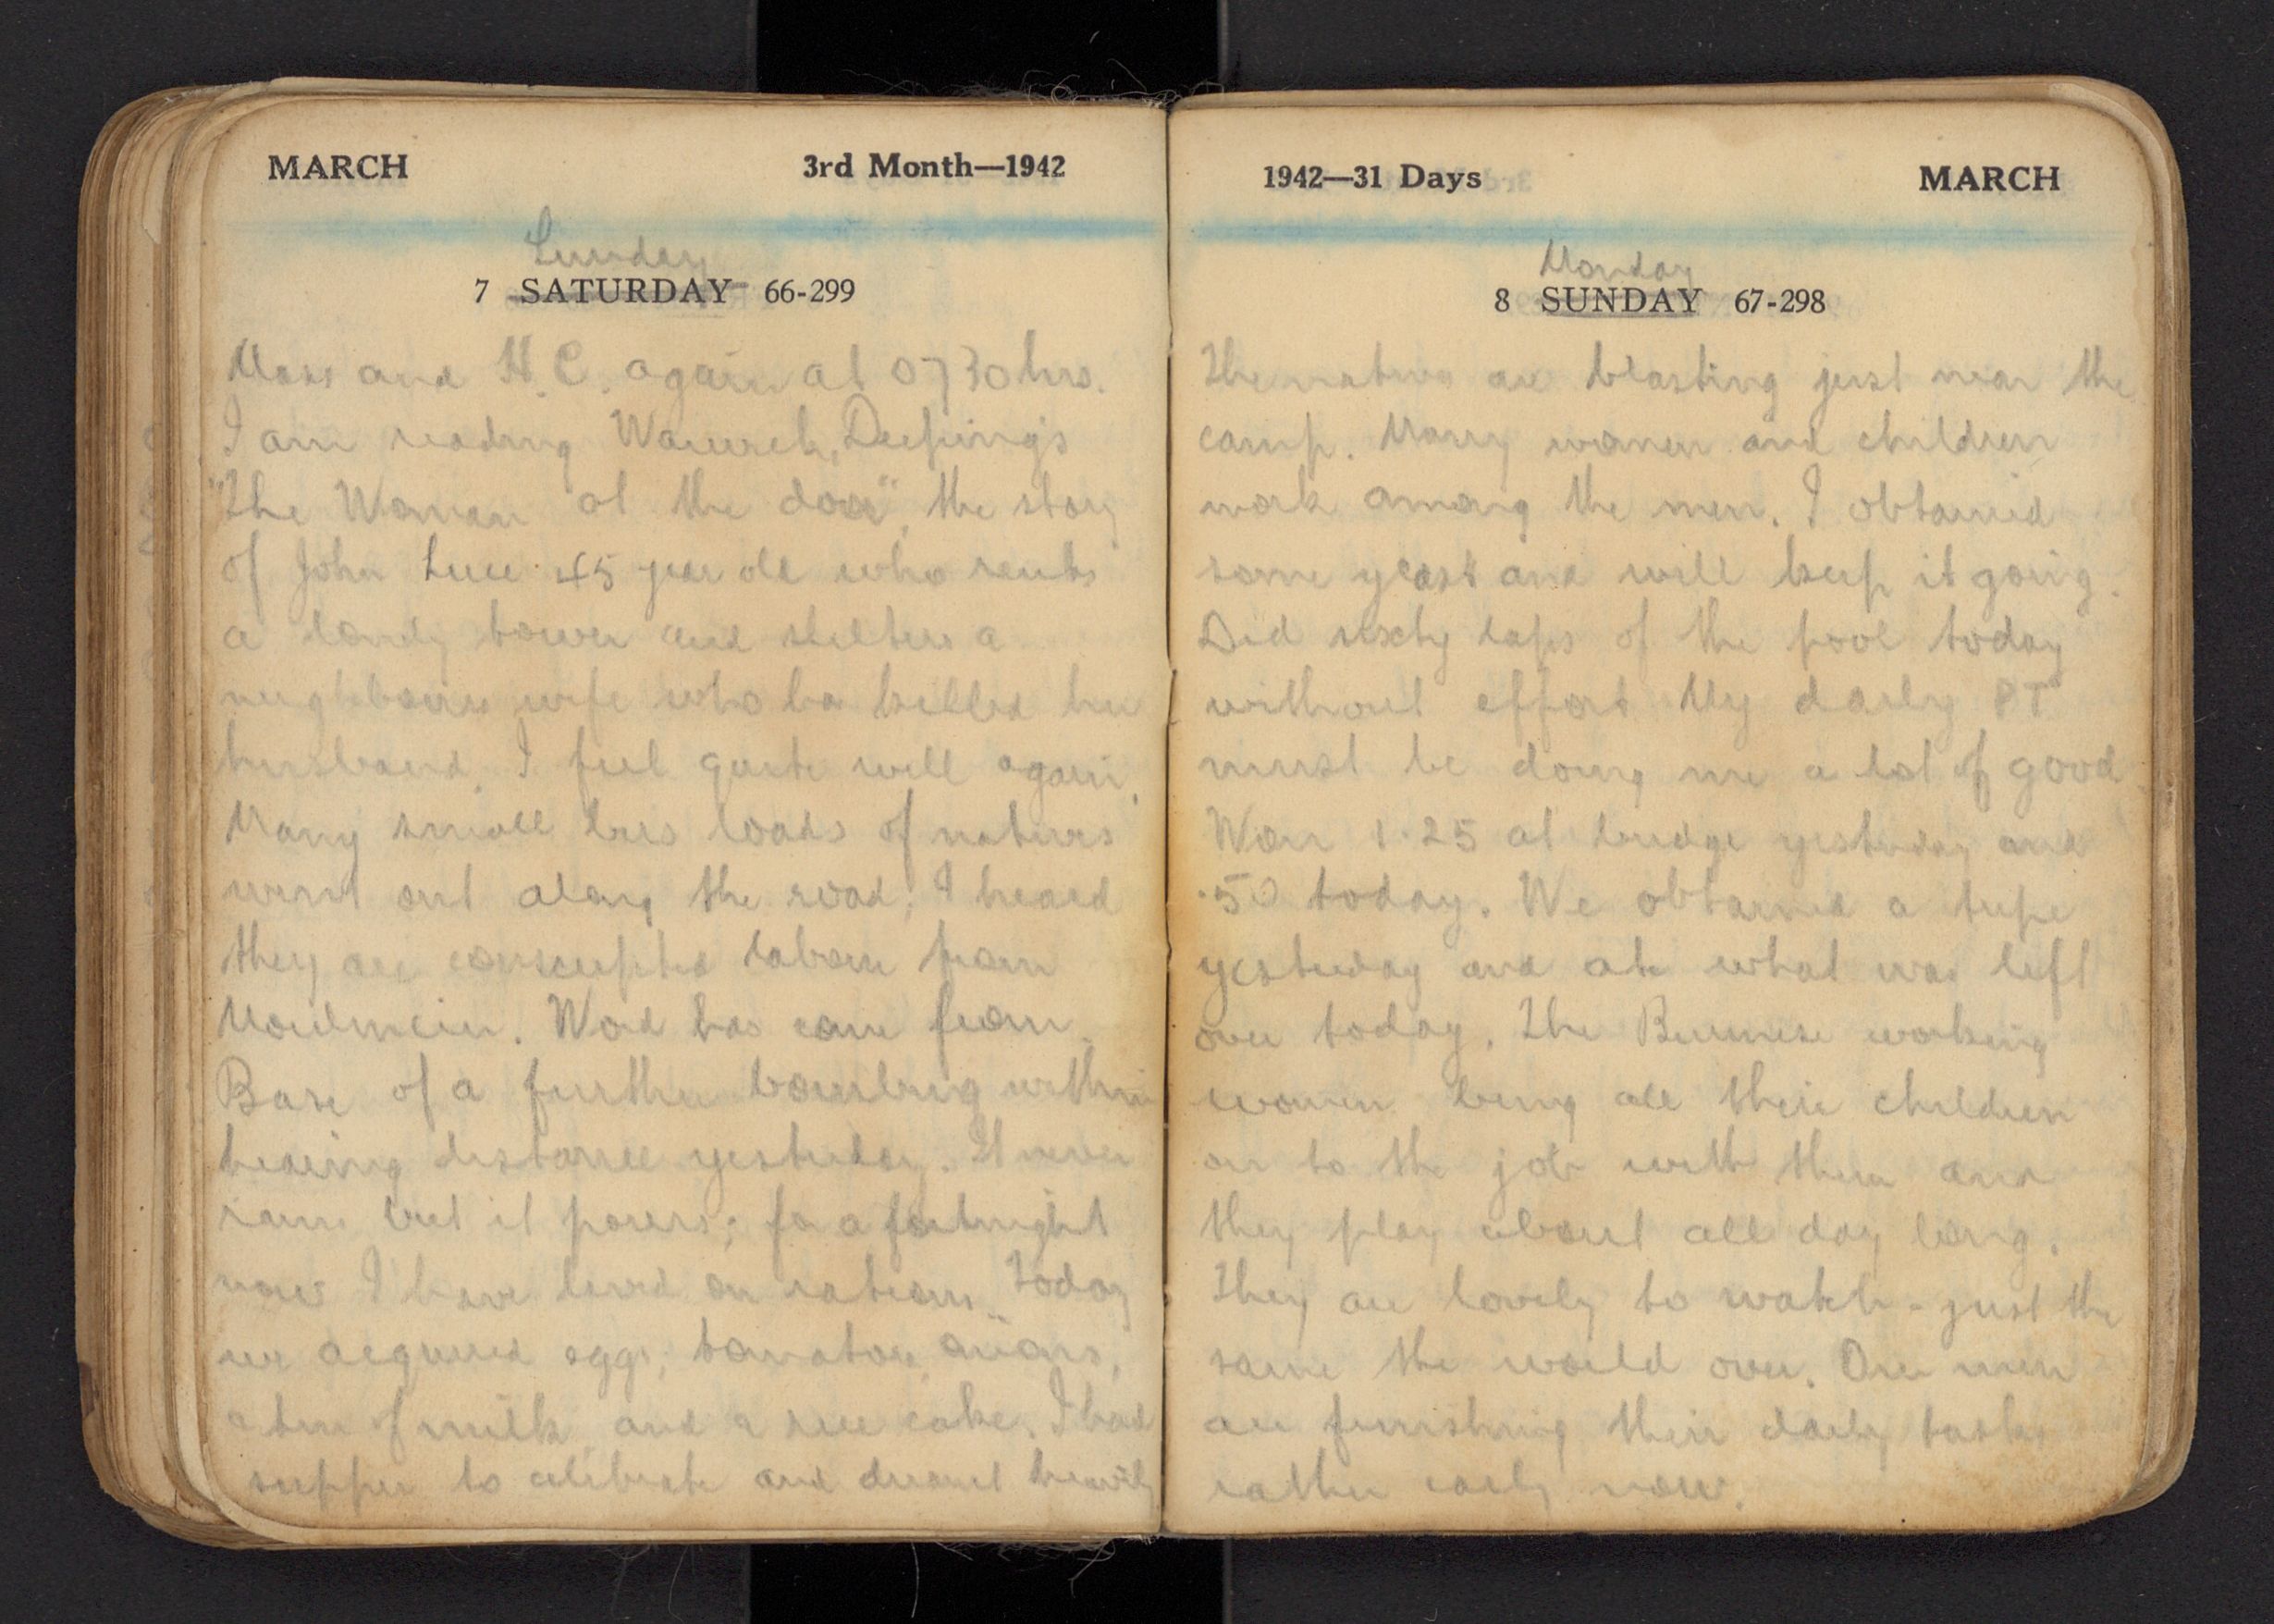 MARCH 3rd Month—1942
Sunday
7 SATURDAY 66-299
Mass and H.C. again at 0730 hrs.
I am reading Warwick Deeping's
"The Woman at the door", the story
of John Luce 45 year old who rents
a lonely tower and shelters a
neighbours wife who has killed her
husband. I feel quite well again.
Many small bus loads of natives
went out along the road; I heard
they are conscripted labour from
Moulmein. Word has come from
Base of a further bombing within
hearing distance yesterday. It never
rains but it pours; for a fortnight
now I have lived on rations. Today
we acquired eggs, tomatoes, onions,
a tin of milk, and a rice cake. I had
supper to celebrate and dreamt heavily
1942—31 Days MARCH
Monday
8 SUNDAY 67-298
The natives are blasting just near the
camp. Many women and children
work among the men. I obtained
some yeast and will keep it going.
Did sixty laps of the pool today
without effort. My daily PT
must be doing me a lot of good
Won 1.25 at bridge yesterday and
.50 today. We obtained a tripe
yesterday and ate what was left
over today. The Burmese working
women bring all their children
on to the job with them and
they play about all day long.
They are lovely to watch - just the
same the world over. Our men
are finishing their daily tasks
rather early now.